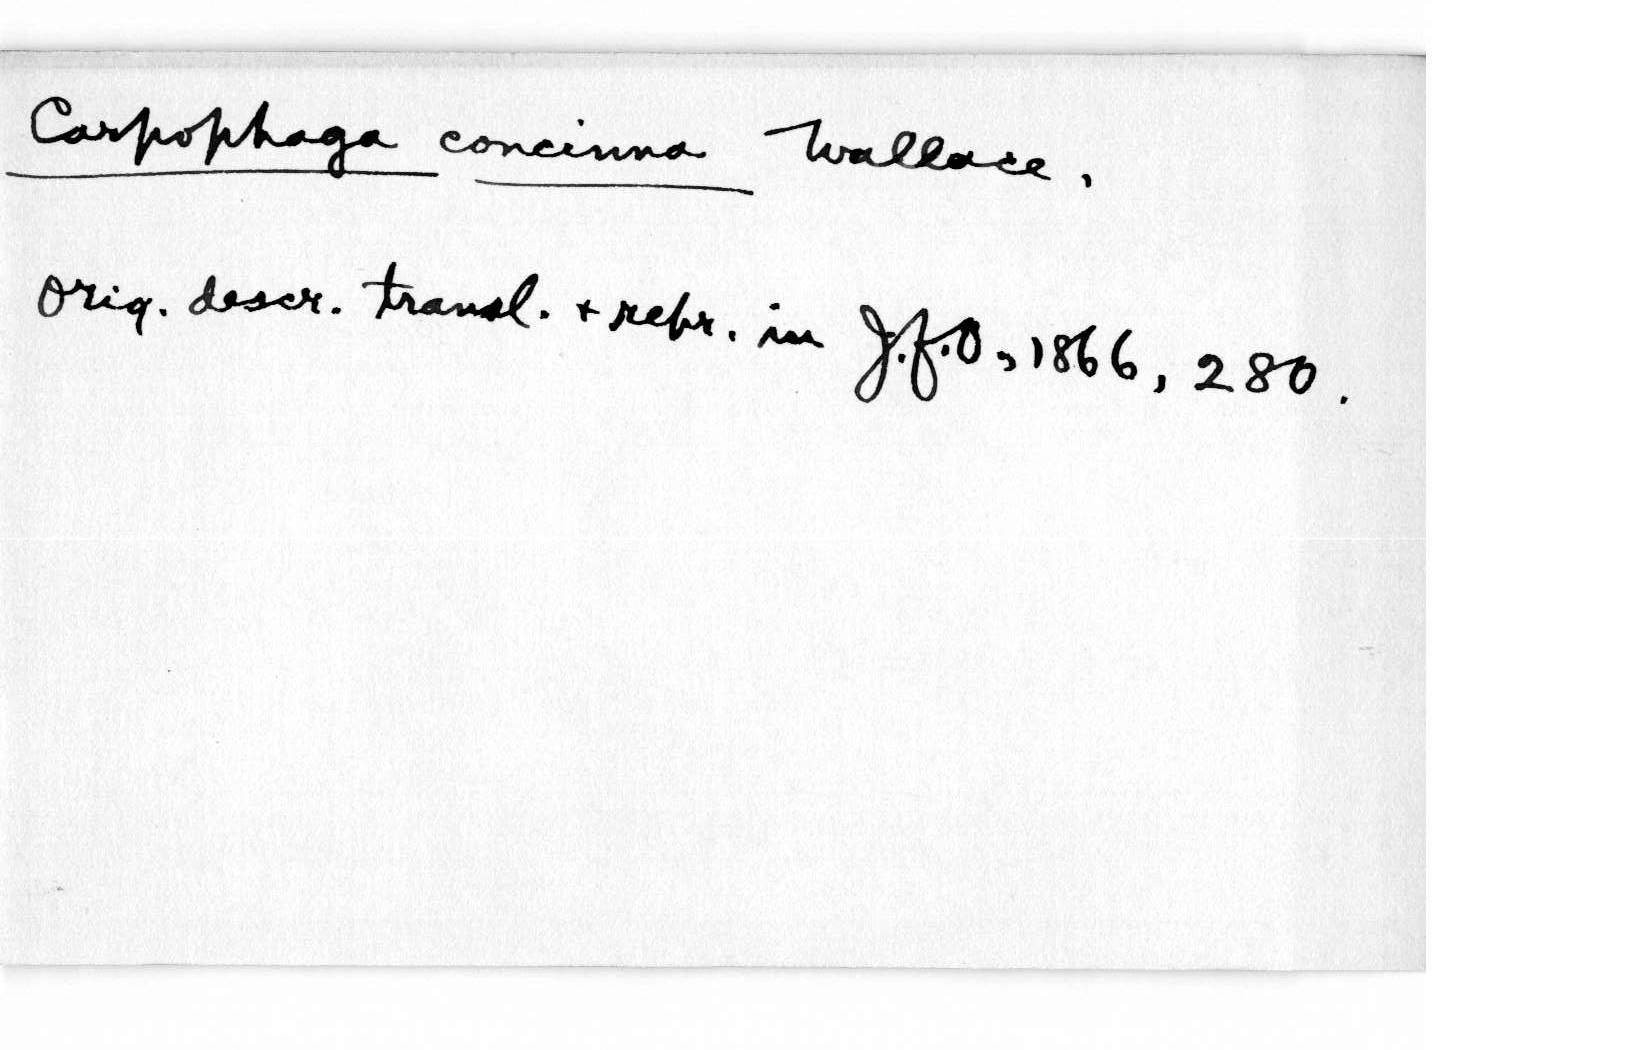 Carpophaga concinna Wallace,
Orig. descr. transl. + repr. in J.f.O, 1866, 280.